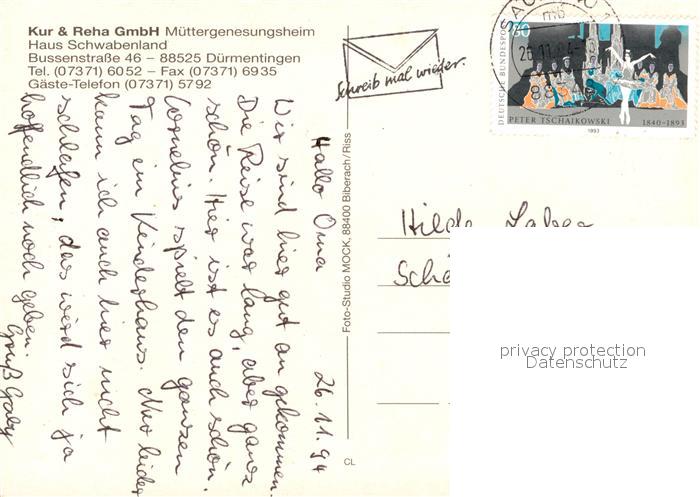 Kur & Reha GmbH Müttergenesungsheim
Haus Schwabenland
Bussenstraße 46 – 88525 Dürmentingen
Tel. (07371) 6052 – Fax (07371) 6935
Gäste-Telefon (07371) 5792
Hallo Oma 26.11.94
Wir sind hier gut an gekommen.
Die Reise war lang, aber ganz
schön. Hier ist es auch schön.
Cornelius spielt den ganzen
Tag im Kinderhaus. Nur leider
kann ich auch hier nicht
schlafen, das wird sich ja
hoffentlich noch geben.
Gruß Gaby
Foto-Studio MOCK, 88400 Biberach/Riss
CL
Schreib mal wieder.
26.11.94
88
DEUTSCHE BUNDESPOST
80
PETER TSCHAIKOWSKI 1840–1893
1993
Hilde
Sch
privacy protection
Datenschutz